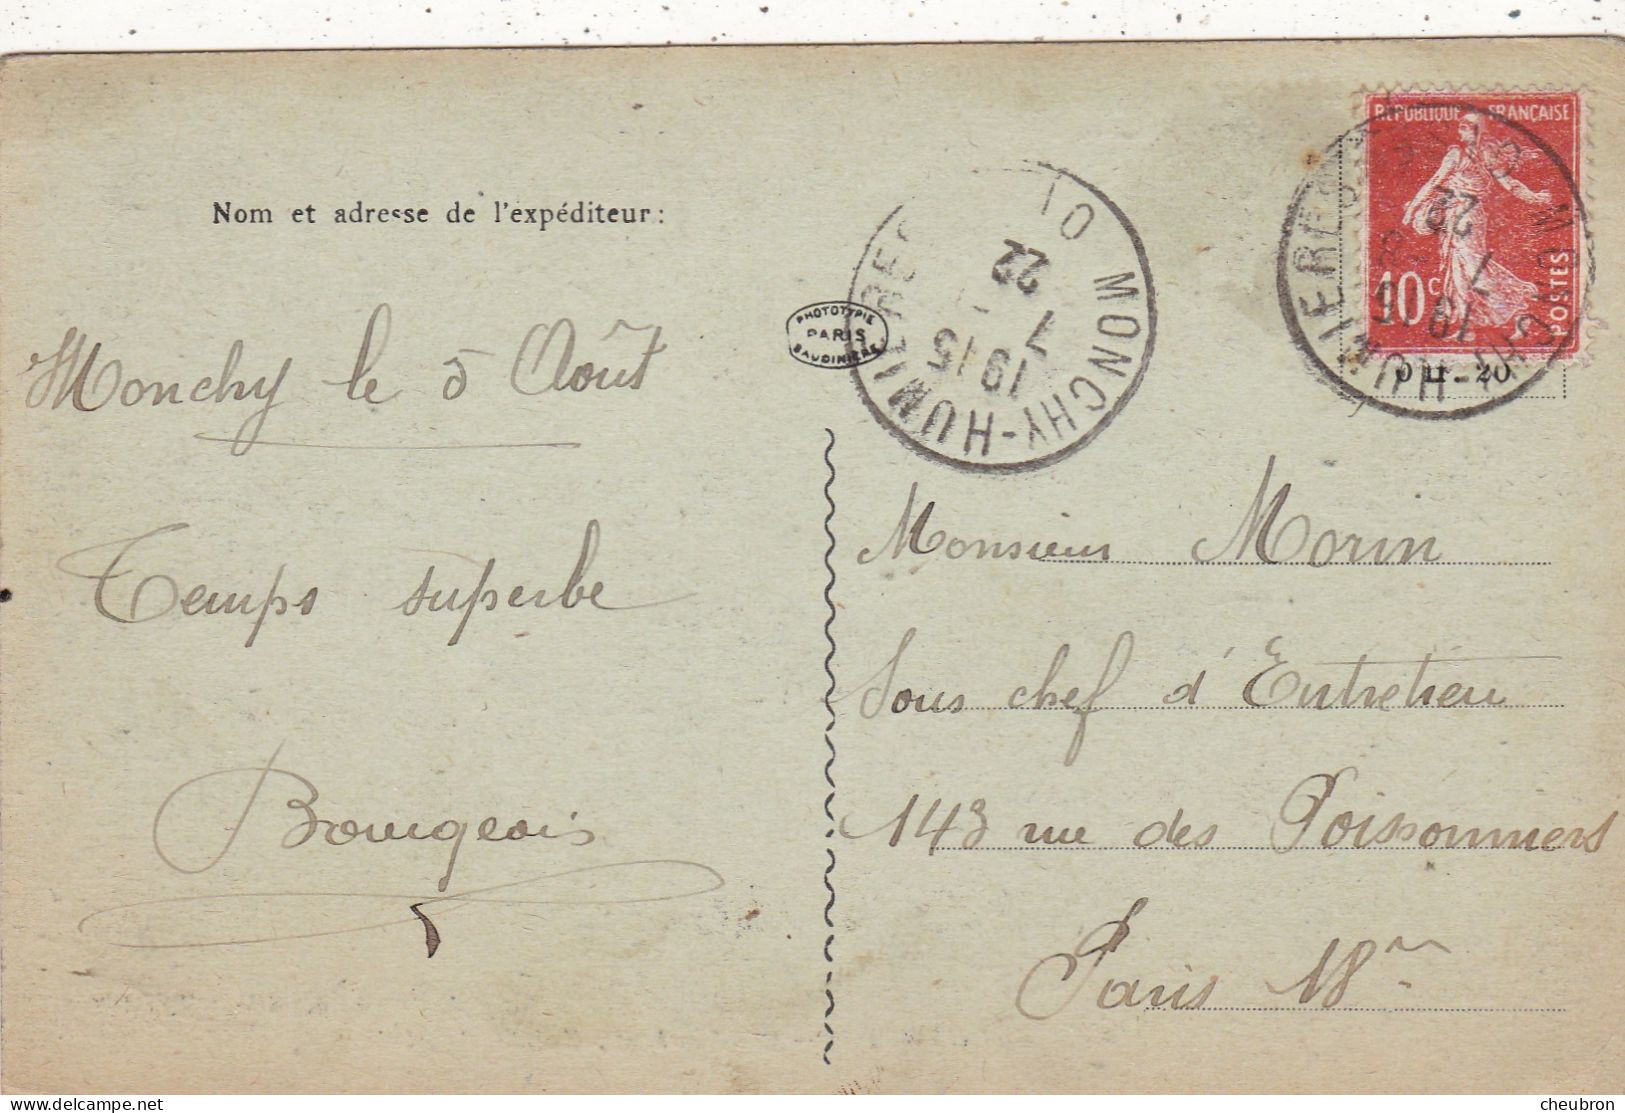 Nom et adresse de l'expéditeur:
Monchy le 5 Août
Temps superbe
Bourgeois
PHOTOTYPIE
PARIS
BAUDINIÈRE
MONCHY-HUMIERES
22
7
1915
REPUBLIQUE FRANÇAISE
10c
POSTES
MONCHY-HUMIERES
22
7 8
1915
Monsieur Morin
Sous chef d'Entretien
143 rue des Poissonniers
Paris 18me
delcampe.net
cheubron